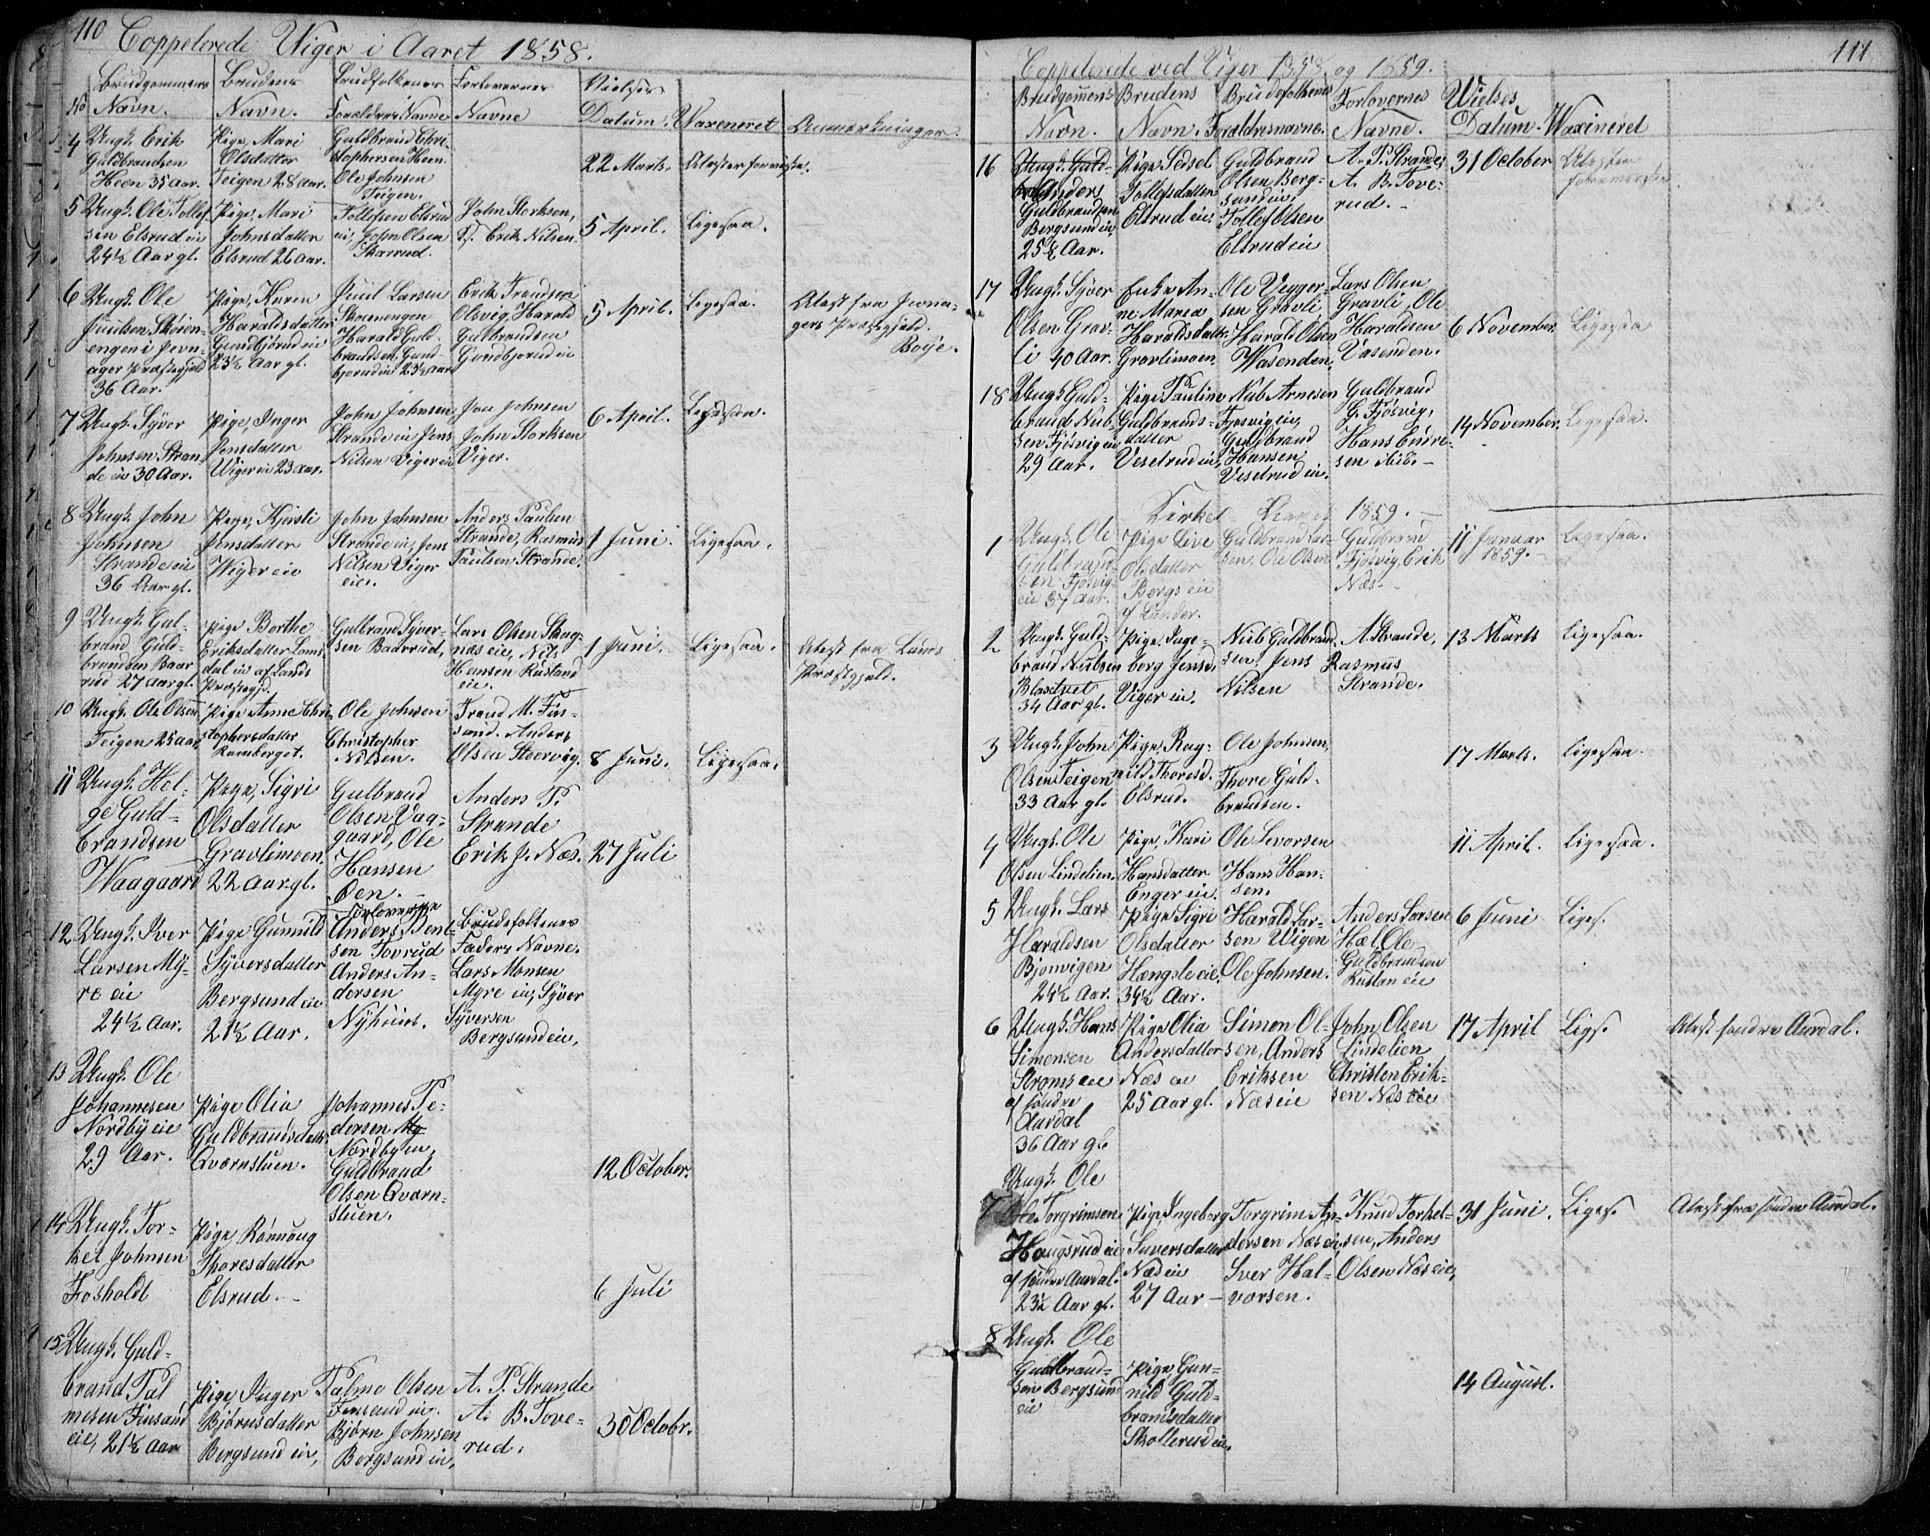 110 Coppelerede Viger i Aaret 1858.
Brudgommens Brudens Brudfolkenes Forlovernes Vielses
No Navn. Navn. Foreldres Navne Navne Datum. Vaxeneret Anmerkninger.
4 Ungk. Erik Guldbrandsen Heen 35 Aar.
Pige, Mari Olsdatter Teigen 28 aar.
Guldbrand Christophersen Heen Ole Johnsen Teigen.
22 Marts. Atester foreviste.
5 Ungk. Ole Tollefsen Elsrud eie 24½ Aar gl.
Pige, Mari Johnsdatter Elsrud 26 aar.
Tollefsen Elsrud eie, John Olsen Skarrud.
John Storksen, Erik Nilsen.
5 April. Ligesaa.
6 Ungk. Ole Juulsen Skoienengen i Jevnager Præstegjæld 36 Aar.
Pige, Karen Haraldsdatter Gundbjørud eie 23½ Aar gl.
Juul Larsen Skoienengen Harald Guldbrandsen Gundbjorud eie 23½ aar
Erik Trondsen Olsvig, Harald Gulbrandsen Gundbjorud eie
5 April. Ligesaa. Atest fra Jevnagers Præstgjæld. Boije.
7 Ungk. Syver Johnsen Strande eie 30 Aar.
Pige, Inger Jensdatter Wiger eie 23 aar.
John Johnsen Strande eie Jens Nilsen Viger eie
Jon Johnsen John Storksen Viger.
6 April. Ligesaa.
8 Ungk. John Johnsen Strande eie 36 Aar gl.
Pige, Kjersti Jensdatter Wiger eie
John Johnsen Strande eie, Jens Nilsen Viger eie.
Anders Paulsen Strande, Rasmus Paulsen Strande.
1 Juni. Ligesaa.
9 Ungk. Gulbrand Guldbrandsen Baarrud 27 aar gl.
Pige Berthe Eriksdatter Lomsdal eie af Lands Præstegj.
Gulbrand Syversen Badrrud,
Lars Olsen Skognæs eie, Nils Hansen Rustand eie.
1 Juni. Ligesaa. Atest fra Lands Præstgjæld.
10 Ungk. Ole Olsen Teigen 25 aar
Pige Anne Christophersdatter Ramberget.
Ole Johnsen Christopher Nilsen.
Trond M. Finsand. Anders Olsen Stoervig.
8 Juni. Ligesaa.
11 Ungk. Helge Guldbrandsen Waagaard
Pige, Sigri Olsdatter Gravlimoen. 22 aar gl.
Gulbrand Olsen Vaagaard, Ole Hansen Øen.
Anders P. Strande Erik J. Næs.
27 Juli
12 Ungk. Iver Larsen Myre eie 24½ Aar.
Pige Gunnild Syversdatter Bergsund eie 21½ Aar.
Forloverne Anders Bentsen Tovrud Anders Andersen Nyhuus.
Brudefolkenes Faders Navne. Lars Monsen Myre eie, Syver Syversen Bergsund eie,
13 Ungk. Ole Johannesen Nordby eie 29 Aar.
Pige Olia Guldbrandsdatter Qværnstuen.
Johannes Pedersen Nordby eie, Guldbrand Olsen Qværnstuen.
12 October.
14 Ungk. Torkel Johnsen Fosholdt
Pige Rønnoug Thoresdatter Elsrud.
6 Juli
15 Ungk. Guldbrand Palmesen Finsand eie, 21½ Aar
Pige, Inger Bjørnsdatter Bergsund eie,
Palme Olsen Finsand eie. Bjørn Johnsen Bergsund eie,
A. P. Strande A. B. Toverud.
30 Octobr.
111
Coppelerede ved Viger 1858 og 1859.
Brudgomens Brudens Brudefolkenes Forlovernes Wielses
Navn. Navn. Foraldresnavne. Navne. Datum. Waxineret
16 Ungk. Guldbrand Anders Guldbrandsen Bergsund eie, 25½ Aar.
Pige Sidsel Tollefsdatter Elsrud eie
Guldbrand Olsen Bergsund eie, Tollef Olsen Elsrud eie
A. P. Strande, A. B. Toverud.
31 October Atester forevueiste
17 Ungk. Syver Olsen Gravli 40 Aar.
Enke Anne Maria Haraldsdatt. Gravlimoen.
Ole Veggersen Gravli, Harald Olsen Wasenden,
Lars Olsen Gravli, Ole Haraldsen Vasenden.
6 November. Ligesaa
18 Ungk Guldbrand Nubsen Fjøsvig eie 29 Aar.
Pige Pauline Guldbrandsdatter Veseterud eie,
Nub Arnesen Fjosvig eie, Guldbrand Hansen Veseterud eie.
Guldbrand G. Fjøsvig, Hans Endresen ibid.
14 November. Ligesaa.
Kirke Aaret 1859.
1 Ungk. Ole Guldbrandsen Fjøsvig eie 37 aar.
Pige Live Olsdatter Bergs eie af Lander.
Guldbrand Larsen, Ole Olsen
Guldbrand Fjøsvig, Erik Næs.
11 Januar 1859. Ligesaa.
2 Ungk. Guldbrand Nubsen Blaatvet 34 Aar gl.
Pige. Ingeborg Jensd. Viger eie.
Nub Guldbrandsen, Jens Nilsen
A. Strande, Rasmus Strande.
13 Marts Ligesaa.
3 Ungk. John Olsen Teigen 33 Aar gl.
Pige, Ragnild Thoresd. Elsrud.
Ole Johnsen, Thore Guldbrandsen.
17 Marts. Ligesaa.
4 Ungk. Ole Olsen Lindelien.
Pige, Kari Hansdatter Enger eie.
Ole Levorsen Hans Hansen.
11 April. Ligesaa.
5 Ungk. Lars Haraldsen Bjonvigen 24½ Aar.
Pige Sigri Olsdatter Hængsle eie, 34½ Aar.
Harald Larsen Wigen Ole Johnsen.
Anders Larsen Hæl, Ole Guldbrandsen Rustan eie
6 Juni Liges.
6 Ungk. Hans Simensen Strøms eie af søndre Aurdal 36 Aar gl.
Pige Olia Andersdatter Næs eie 25 Aar gl.
Simon Olsen, Anders Eriksen Næs eie
John Olsen Lindelien Christen Eriksen Næs eie
17 April Ligs. Atest søndre Aurdal.
7 Ungk. Ole Torgrimsen Haugsrud eie af søndre Aurdal. 23½ Aar gl.
Pige, Ingeborg Suversdatter Næs eie 27 Aar
Torgrim Andersen Næs eie, Sver Halvorsen.
Knud Torkelsen, Anders Olsen Næs eie,
31 Juni. Liges. Atest fra søndre Aurdal.
8 Ungk. Ole Guldbrandsen Bergsund eie
Pige, Gunnild Guldbrandsdatter Skollerud eie.
14 August.